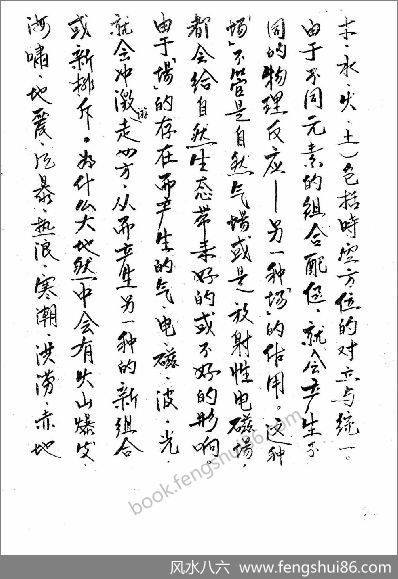 木、水火土）包括時空方位的对立与统一。
由于不同元素的组合配位，就会产生不
同的物理反应——另一种“場”的作用。这种
“場”不管是自然气場或是放射性电磁場，
都会给自然生态带来好的或不好的影响。
由于“場”的存在而产生的气、电、磁、波、光、
就会冲激游走四方，从而产生另一种的新组合
或新排斥。为什么大地然中会有火山爆发、
海啸、地震、风暴、热浪、寒潮、洪涝、赤地
book.fengshui86.com
风水八六 www.fengshui86.com